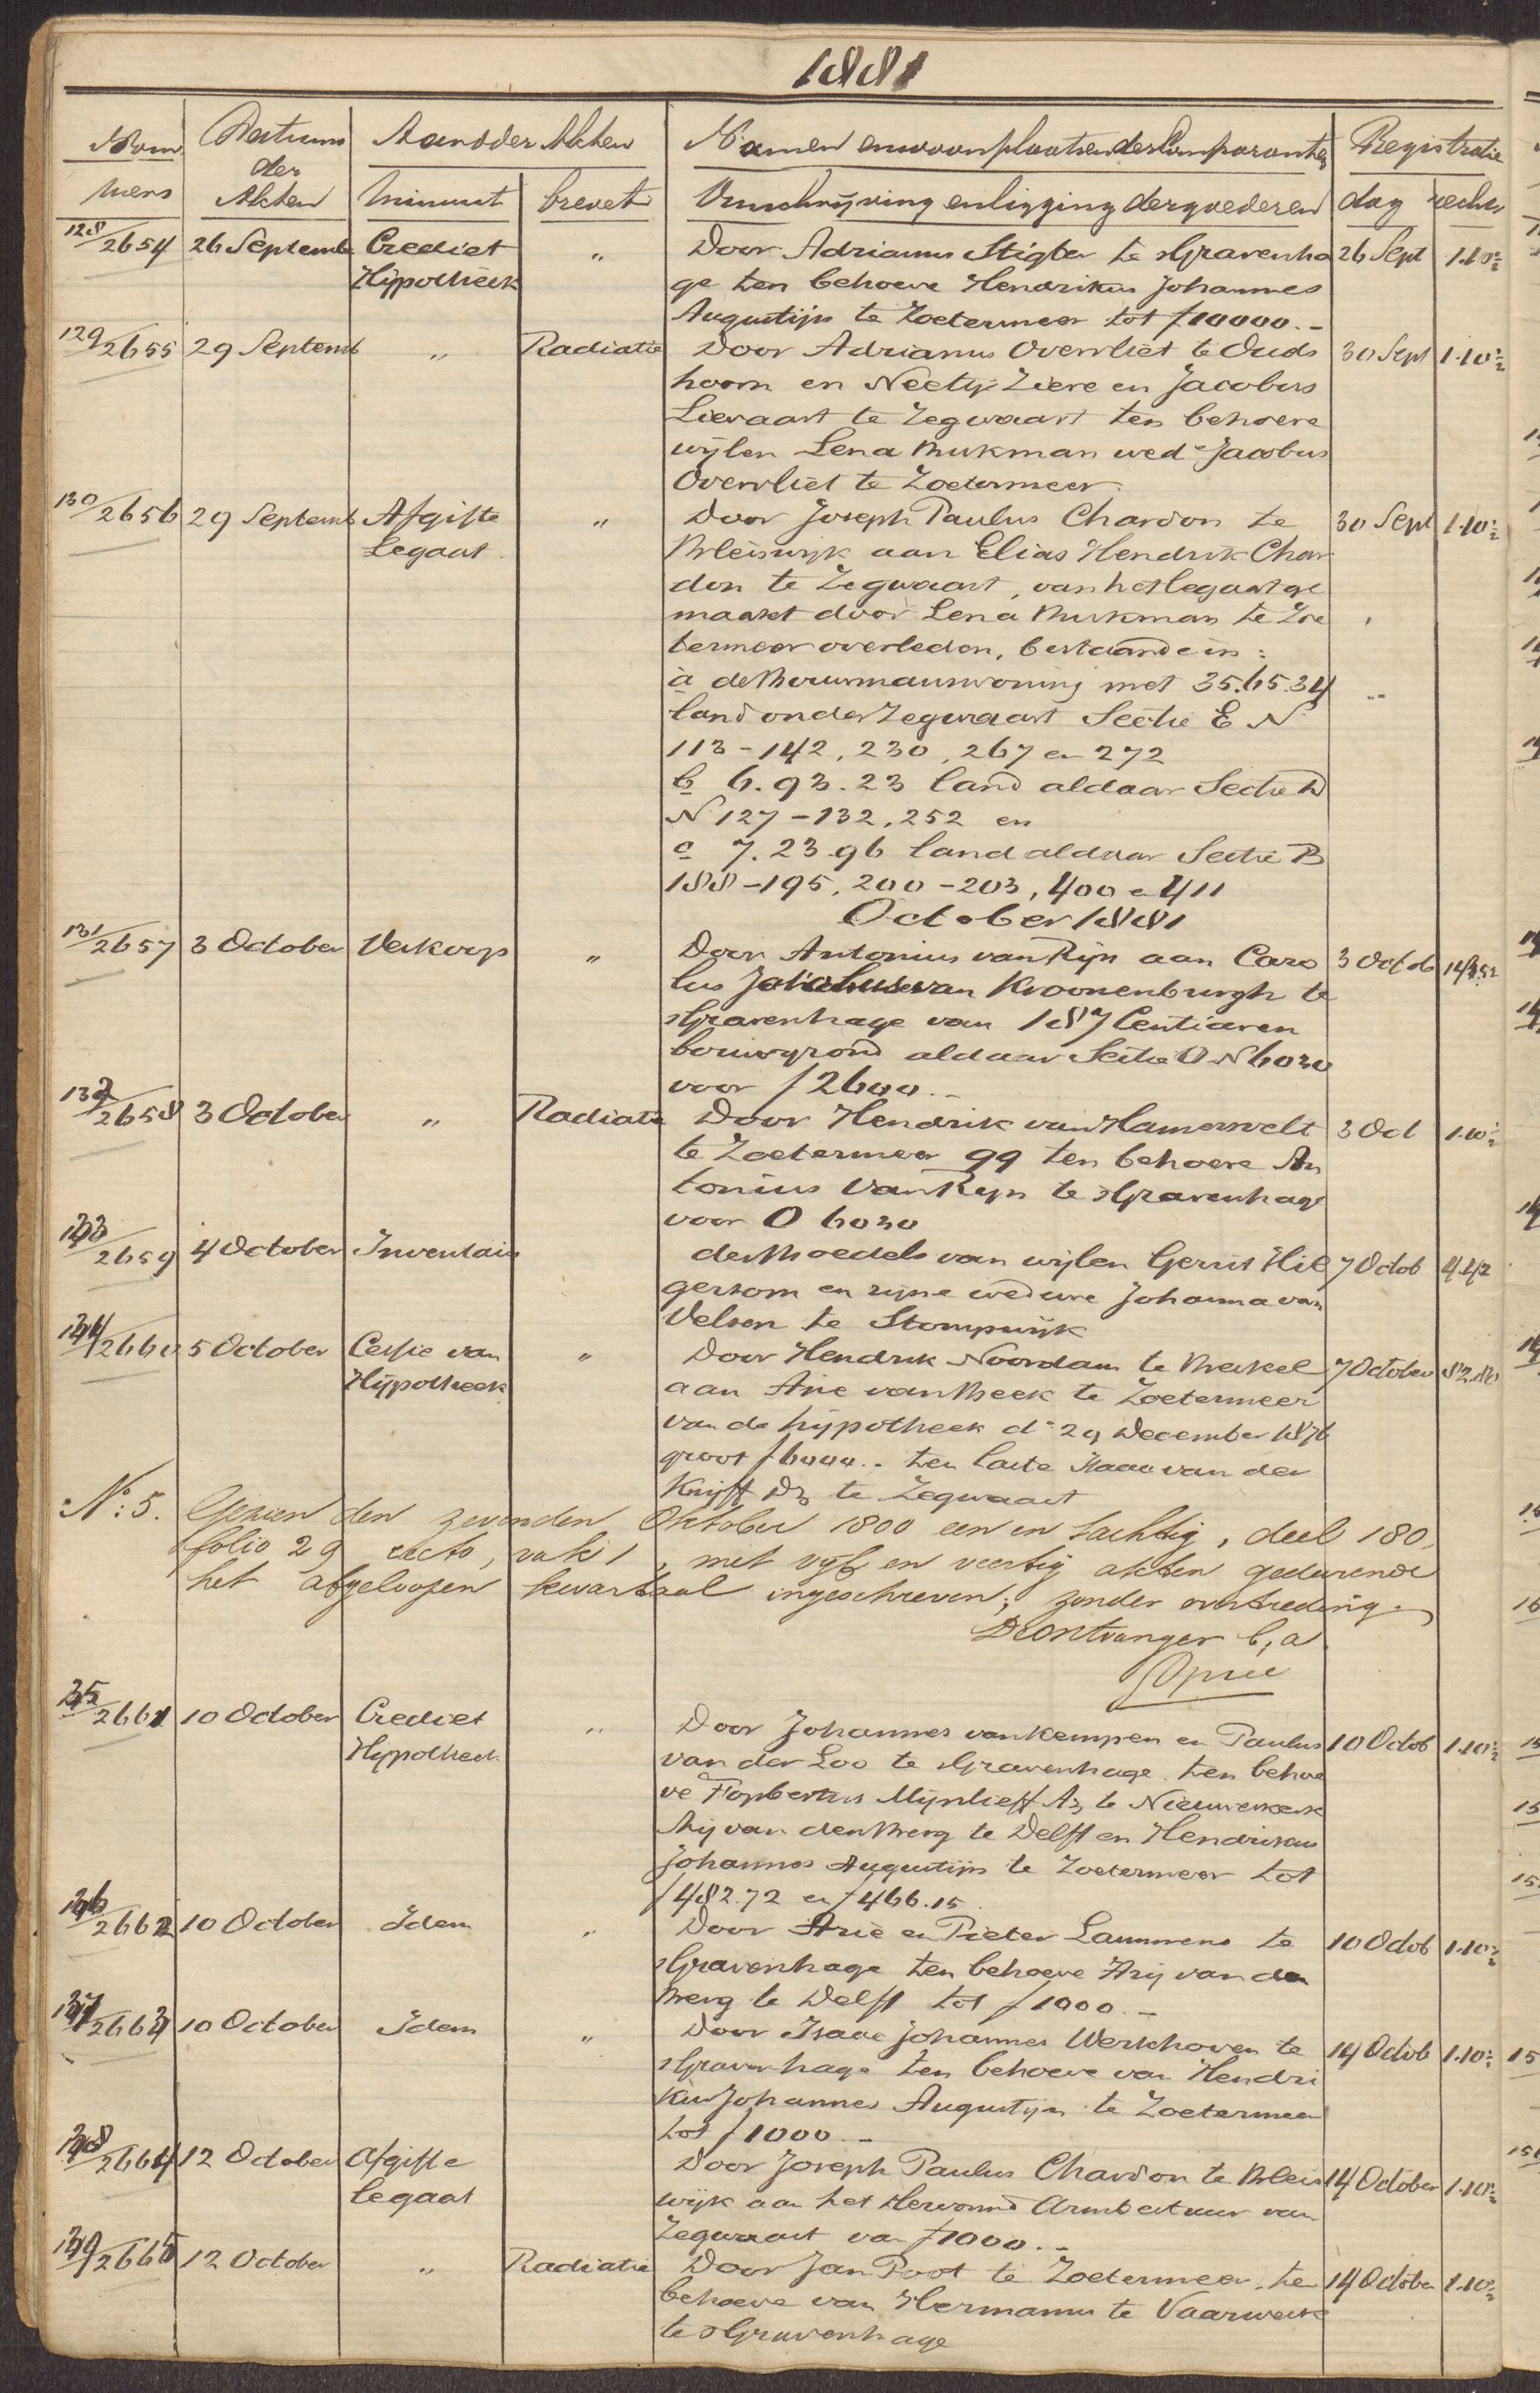 1881
Nom Datums Aard der Akten Namen en woonplaatsen der Comparanten Registratie
mers der Akten minuut brevet Omschrijving en ligging der goederen dag rechten
128/2654 26 Septemb Crediet " Door Adrianus Stigter te sGravenha 26 Sept 1.10½
Hijpotheek ge ten behoeve Hendrikus Johannes
Augustijn te Zoetermeer tot f10000.-
129/2655 29 Septemb " Radiatie Door Adrianus Overvliet te Ouds 30 Sept 1.10½
hoorn en Neeltje Ziere en Jacobus
Lievaart te Zegwaart ten behoeve
wijlen Lena Burkman wede Jacobus
Overvliet te Zoetermeer.
130/2656 29 Septemb Afgifte " Door Joseph Paulus Chardon te 30 Sept 1.10½
Legaat Bleiswijk aan Elias Hendrik Char
don te Zegwaart, van het legaat ge
maakt door Lena Burkman te Zoe
termeer overleden, bestaande in:
a de Bouwmanswoning met 35.65.34
land onder Zegwaart Sectie E N
113-142, 230, 267 en 272
b 6.93.23 land aldaar Sectie D
N 127-132, 252 en
c 7.23.96 land aldaar Sectie B
188-195, 200-203, 400 en 411
October 1881
131/2657 3 October Verkoop " Door Antonius van Rijn aan Caro 3 Octob
lus van Kroonenburgh te
sGravenhage van 187 Centiaren
bouwgrond aldaar Sectie O N 6030
voor f2600.-
132/2658 3 October " Radiatie Door Hendrik van Hamersvelt 3 Oct 1.10½
te Zoetermeer qq ten behoeve An
tonius van Rijn te sGravenhage
voor O 6030
133/2659 4 October Inventaris des Boedels van wijlen Gerrit Hil 7 Octob 4.42
gersom en zijne weduwe Johanna van
Velsen te Stompwijk
134/2660 5 October Cessie van " Door Hendrik Noordam te Berkel 7 October 82.80
Hijpotheek aan Arie van Beek te Zoetermeer
van de hijpotheek dº 29 December 1876
groot f6000.- ten laste Isaac van der
Kruijff Dz te Zegwaart
Nº: 5. Gezien den zevenden Oktober 1800 een en tachtig, deel 180,
folio 29 recto, vak 1, met vijf en veertig akten gedurende
het afgeloopen kwartaal ingeschreven, zonder overtreding.
De Ontvanger b, a
135/2661 10 October Crediet " Door Johannes van Kempen en Paulus 10 Octob 1.10½
Hypotheek van der Loo te sGravenhage ten behoe
ve Fopbertus Mijnlieff Az te Nieuwerkerk
Arij van den Berg te Delft en Hendrikus
Johannes Augustijn te Zoetermeer tot
f482.72 en f466.15.
136/2662 10 October Idem " Door Arie en Pieter Lammens te 10 Octob 1.10½
sGravenhage ten behoeve Arij van den
Berg te Delft tot f1000.-
137/2663 10 October Idem " Door Isaac Johannes Werkhoven te 14 Octob 1.10½
sGravenhage ten behoeve van Hendri
kus Johannes Augustijn te Zoetermeer
tot f1000.-
138/2664 12 October Afgifte Door Joseph Paulus Chardon te Bleis 14 October 1.10½
legaat wijk aan het Hervormd Armbestuur van
Zegwaart van f1000.-
139/2665 12 October " Radiatie Door Jan Poot te Zoetermeer ten 14 October 1.10½
behoeve van Hermanus te Vaarwerk
te sGravenhage